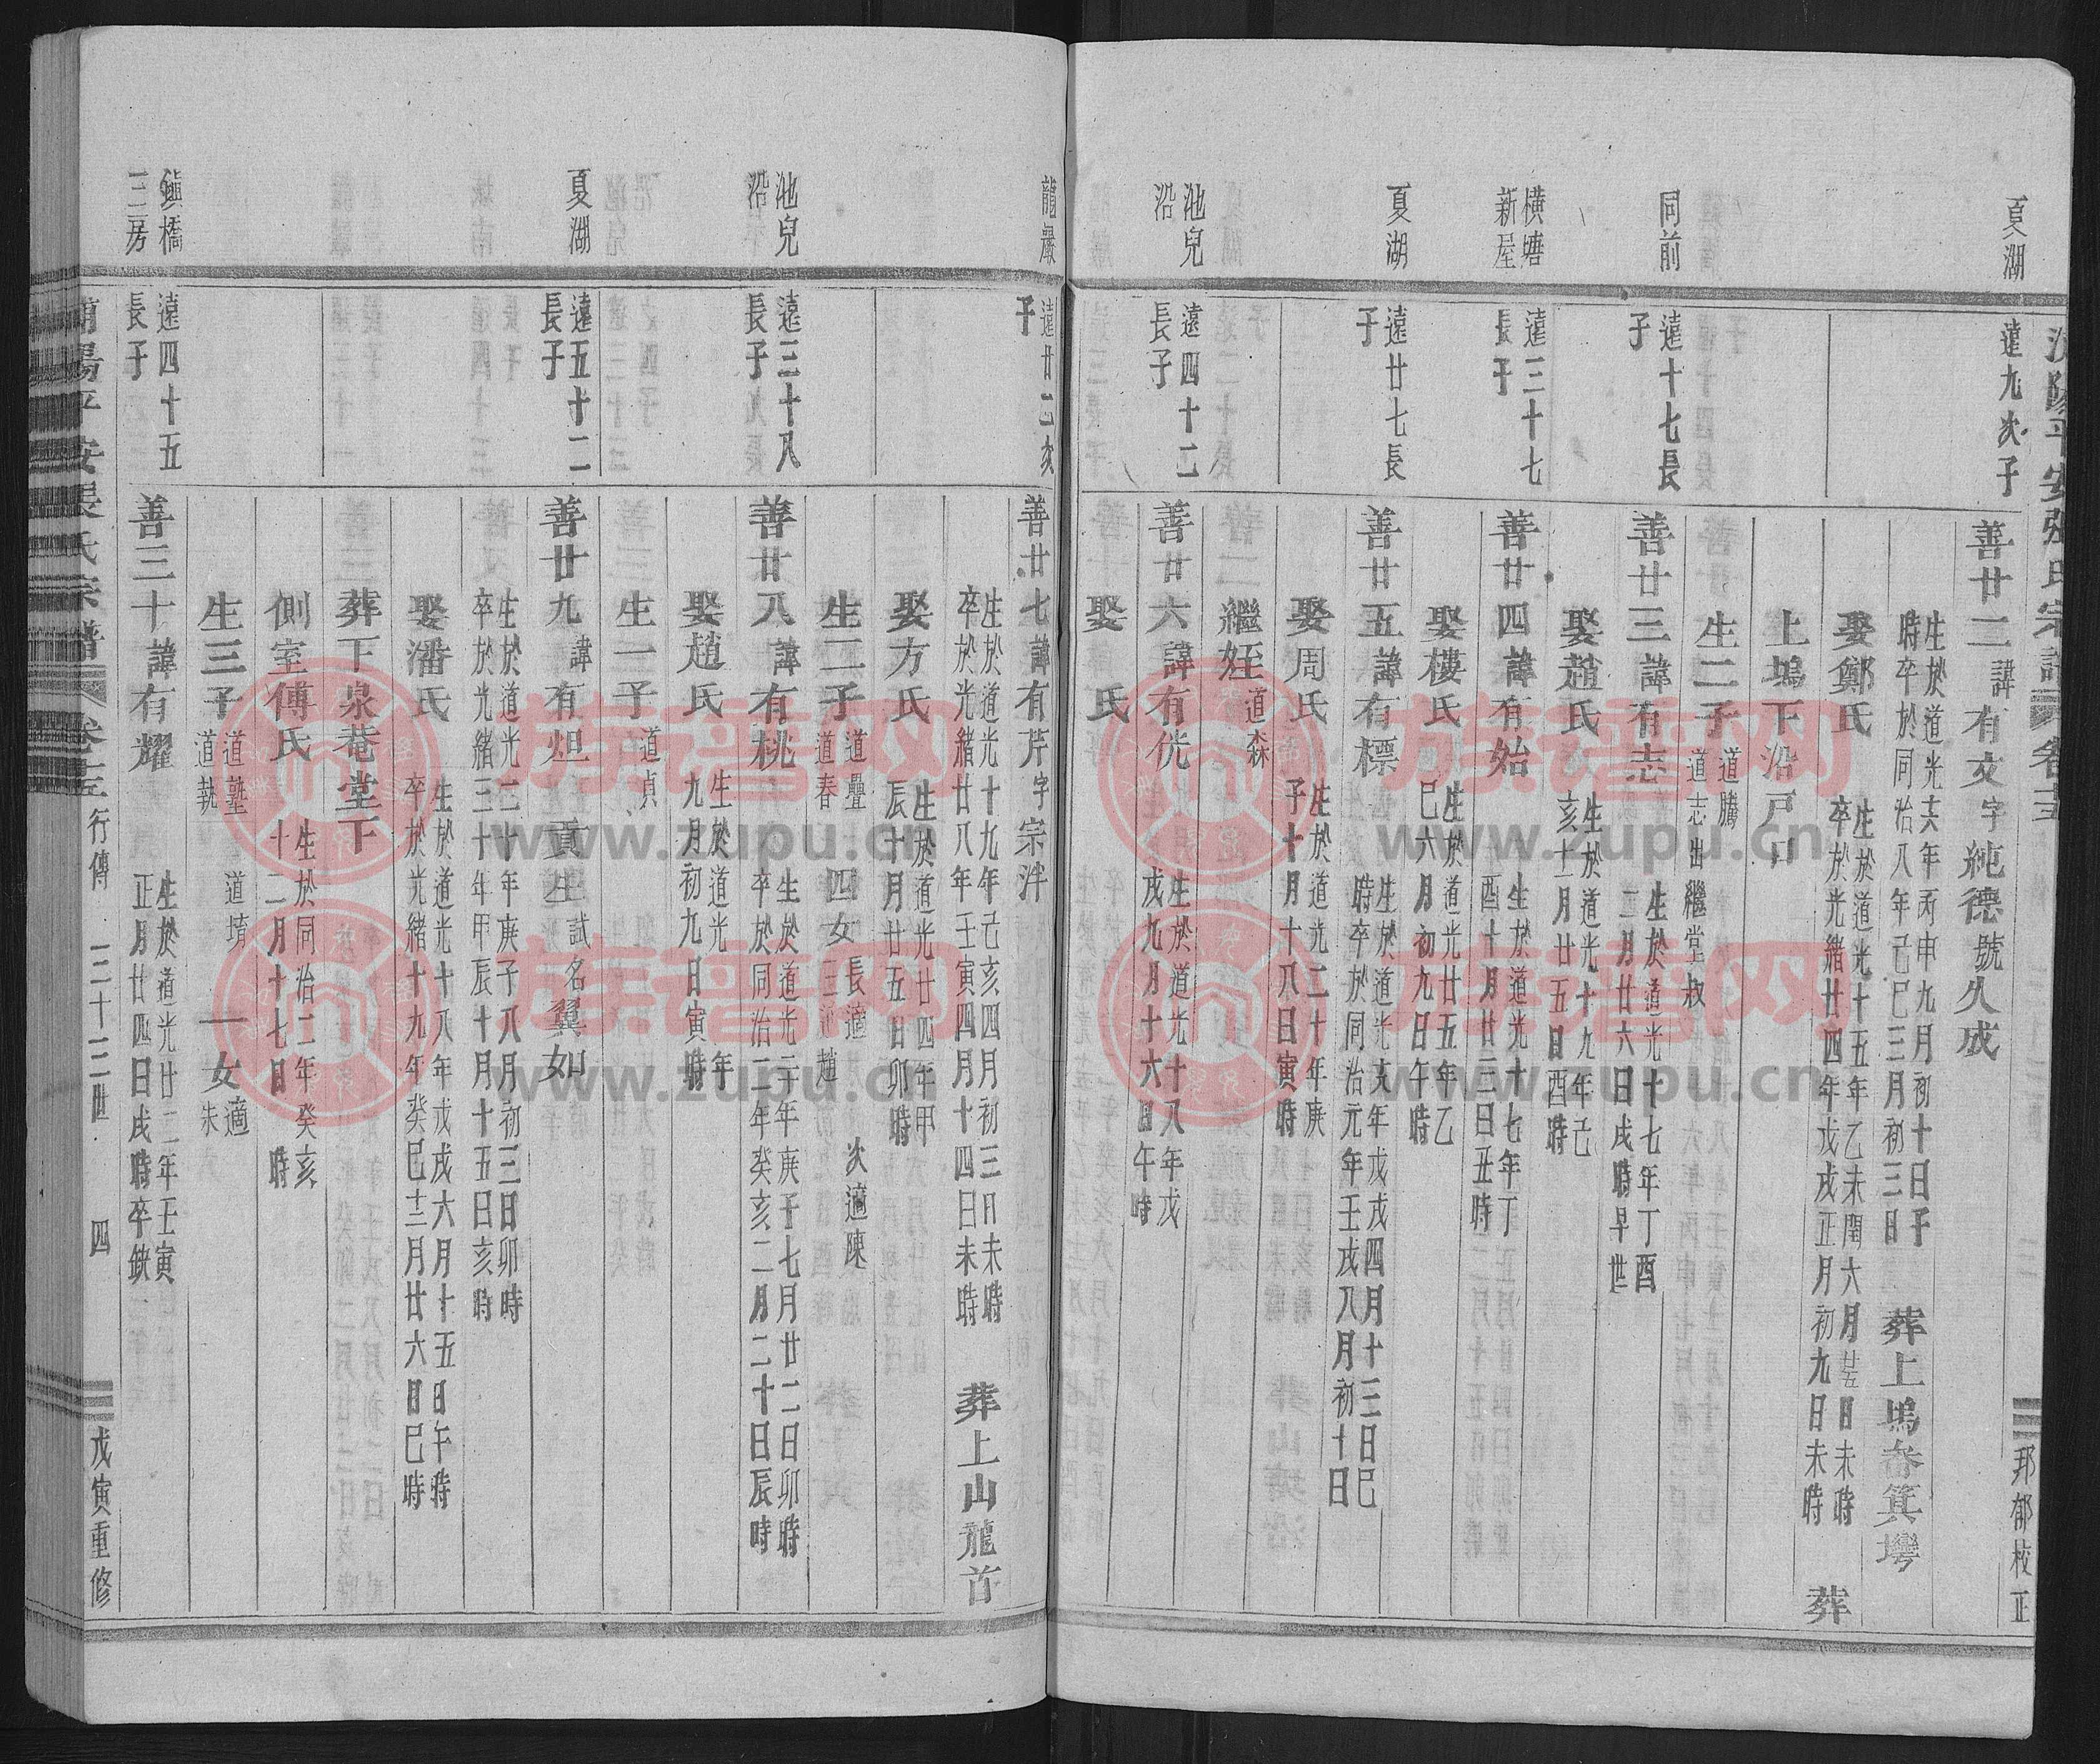 浦陽平安張氏宗譜 卷十五
邦郁校正
夏湖
遠九次子
善廿二諱有文字純德號久成
生於道光十六年丙申九月初十日子
時卒於同治八年己巳三月初三日
葬上塢畚箕塆
娶鄭氏
生於道光十五年乙未閏六月廿五日未時
卒於光緒廿四年戊戌正月初九日未時
葬
上塢下沿戸口
生二子
道騰
道志出繼堂叔
同前
遠十七長
子
善廿三諱有志
生於道光十七年丁酉
二月廿六日戌時早世
娶趙氏
生於道光十九年己
亥十一月廿五日酉時
橫塘
新屋
遠三十七
長子
善廿四諱有始
生於道光十七年丁
酉十月廿三日丑時
娶樓氏
生於道光廿五年乙
巳六月初九日午時
夏湖
遠廿七長
子
善廿五諱有標
生於道光 年戊戌四月十三日巳
時卒於同治元年壬戌八月初十日
娶周氏
生於道光二十年庚
子十月十八日寅時
繼姪
道森
池兒
沿
遠四十二
長子
善廿六諱有侊
生於道光十八年戊
戌九月十六日午時
娶 氏
龍巖
遠廿二次
子
善廿七諱有芹字宗泮
生於道光十九年己亥四月初三日未時
卒於光緒廿八年壬寅四月十四日未時
葬上山龍首
娶方氏
生於道光廿四年甲
辰十月廿五日卯時
生二子
道疊
道春
四女
長適
三適趙
次適陳
池兒
沿
遠三十八
長子
善廿八諱有桃
生於道光二十年庚子七月廿二日卯時
卒於同治二年癸亥二月二十日辰時
娶趙氏
生於道光 年
九月初九日寅時
生一子
道貞
夏湖
遠五十二
長子
善廿九諱有炟貢生試名翼如
生於道光二十年庚子八月初三日卯時
卒於光緒三十年甲辰十月十五日亥時
娶潘氏
生於道光十八年戊戌六月十五日午時
卒於光緒十九年癸巳十二月廿六日巳時
葬下泉菴堂下
側室傅氏
生於同治二年癸亥
十二月十七日 時
生三子
道塾
道執
道堉
一女
適
朱
鎮橋
三房
遠四十五
長子
善三十諱有耀
生於道光廿二年壬寅
正月廿四日戌時卒缺
浦陽平安張氏宗譜 卷十五 行傳 三十三世 四
戊寅重修
族谱网
www.zupu.cn
族谱网
www.zupu.cn
族谱网
www.zupu.cn
族谱网
www.zupu.cn